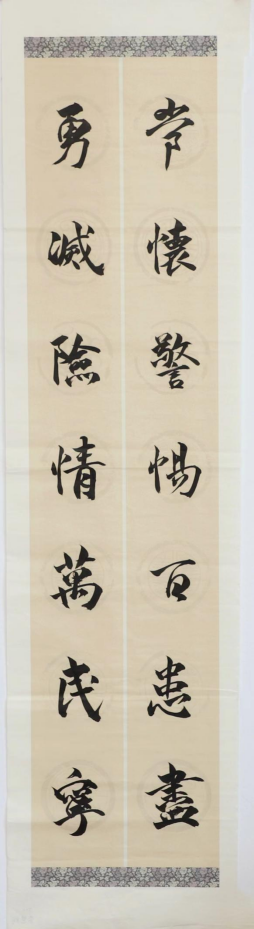 常懷警惕百患盡
勇滅險情萬民寧